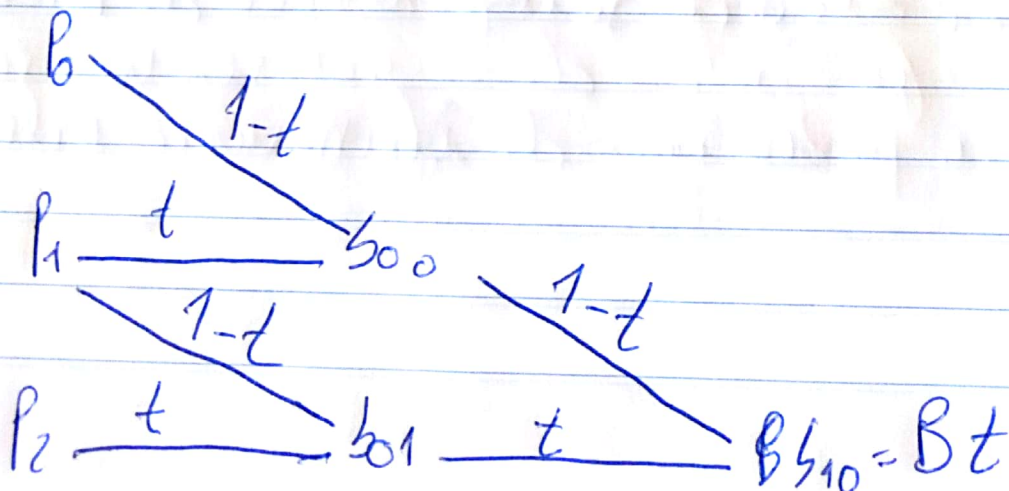 P0
1-t
P1 t b00
1-t 1-t
P2 t b01 t B b10 = Bt